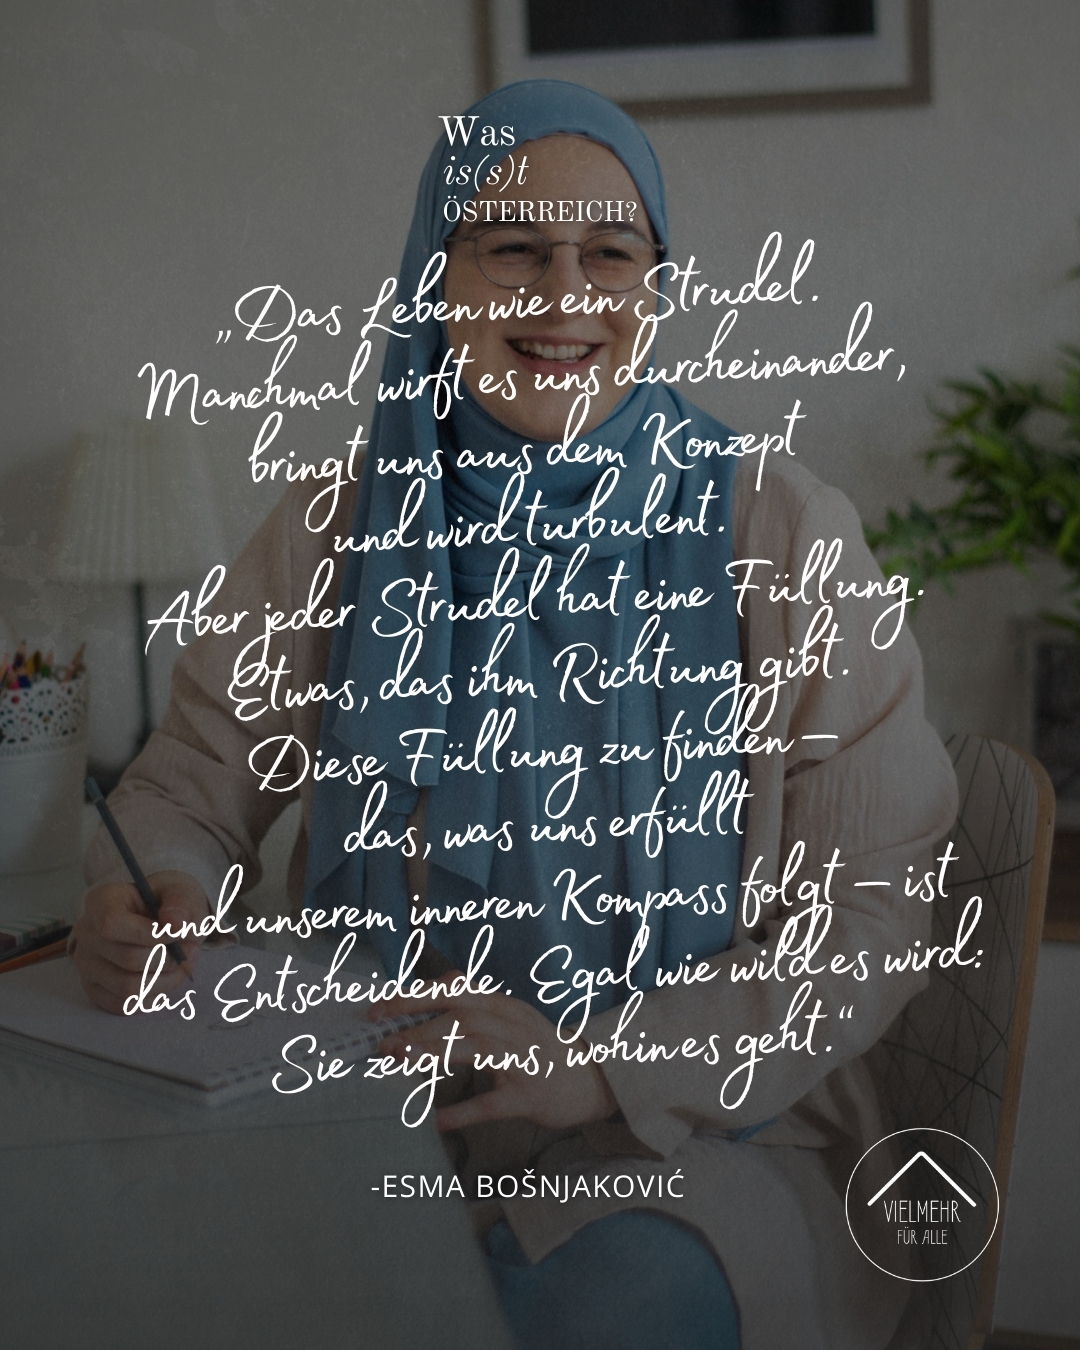 Was
is(s)t
ÖSTERREICH?
„Das Leben wie ein Strudel.
Manchmal wirft es uns durcheinander,
bringt uns aus dem Konzept
und wird turbulent.
Aber jeder Strudel hat eine Füllung.
Etwas, das ihm Richtung gibt.
Diese Füllung zu finden –
das, was uns erfüllt
und unserem inneren Kompass folgt – ist
das Entscheidende. Egal wie wild es wird:
Sie zeigt uns, wohin es geht.“
-ESMA BOŠNJAKOVIĆ
VIELMEHR
FÜR ALLE